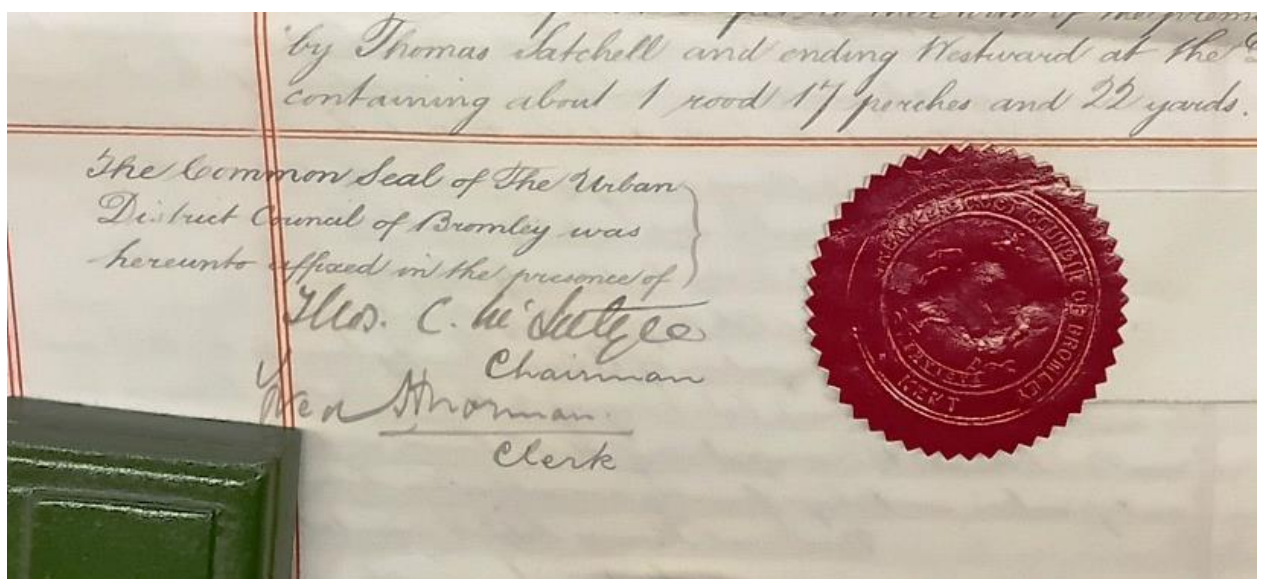 by Thomas Satchell and ending Westward at the
containing about 1 rood 17 perches and 22 yards.
The Common Seal of The Urban
District Council of Bromley was
hereunto affixed in the presence of
Thos. C.
Chairman
Fred H Norman
Clerk
URBAN DISTRICT COUNCIL OF BROMLEY
KENT